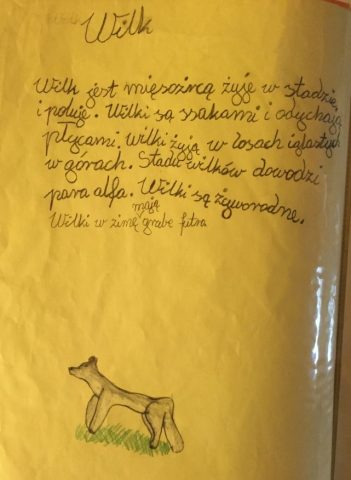 Wilk
Wilk jest mięsożercą żyje w stadzie
i poluje. Wilki są ssakami i oddychają
płucami. wilki żyją w lasach iglastych
w górach. Stadu wilków dowodzi
para alfa. Wilki są żyworodne.
mają
Wilki w zimę grube futra